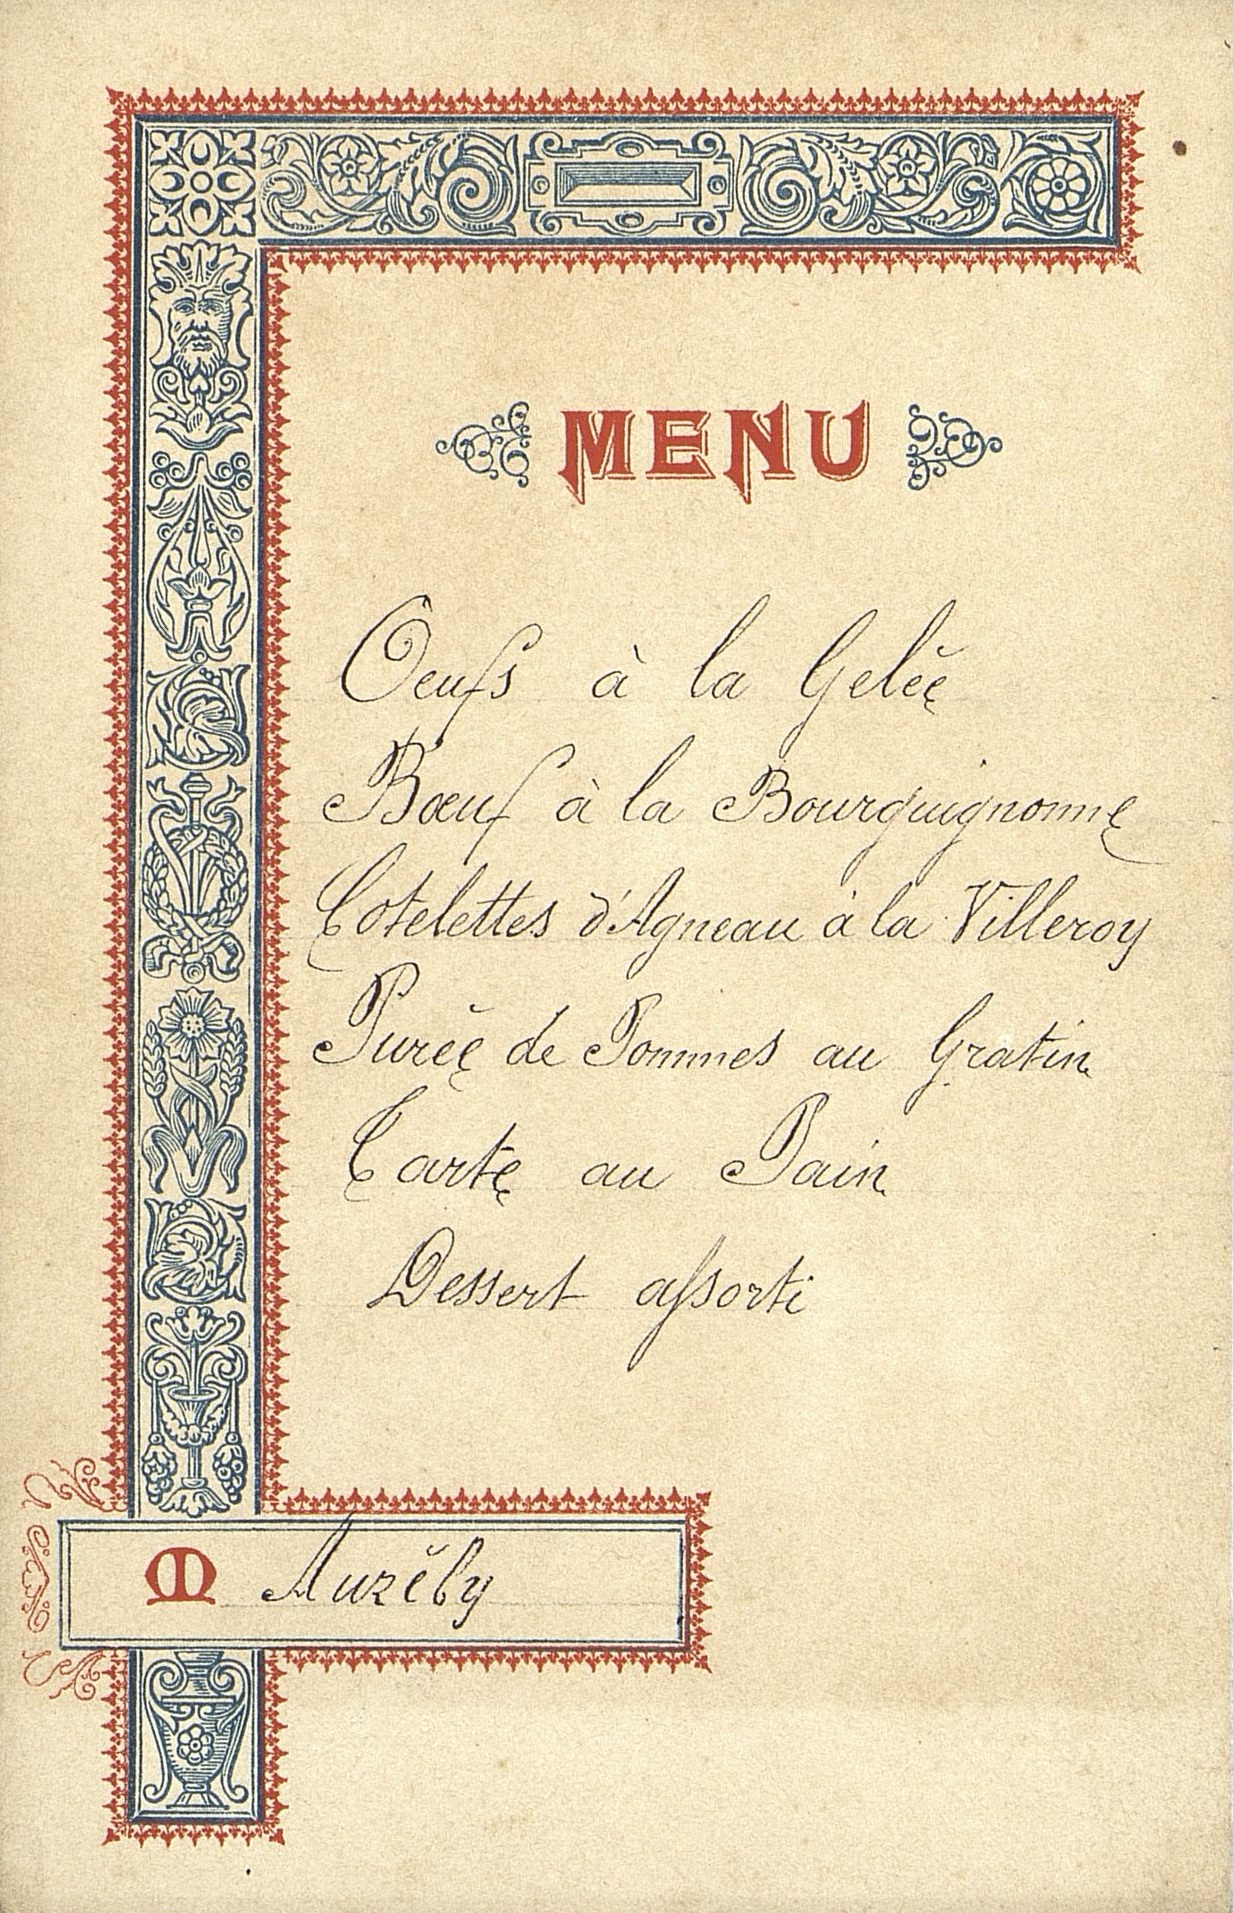 MENU
Oeufs à la Gelée
Bœuf à la Bourguignonne
Cotelettes d'Agneau à la Villeroy
Purée de Pommes au Gratin
Tarte au Pain
Dessert assorti
M Auzéby